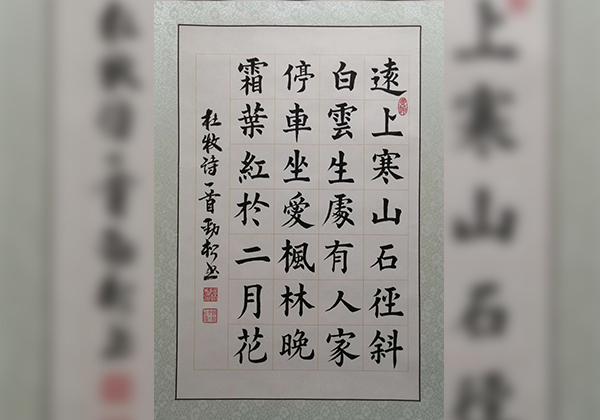 遠上寒山石徑斜
白雲生處有人家
停車坐愛楓林晚
霜葉紅於二月花
杜牧诗一首劲松书